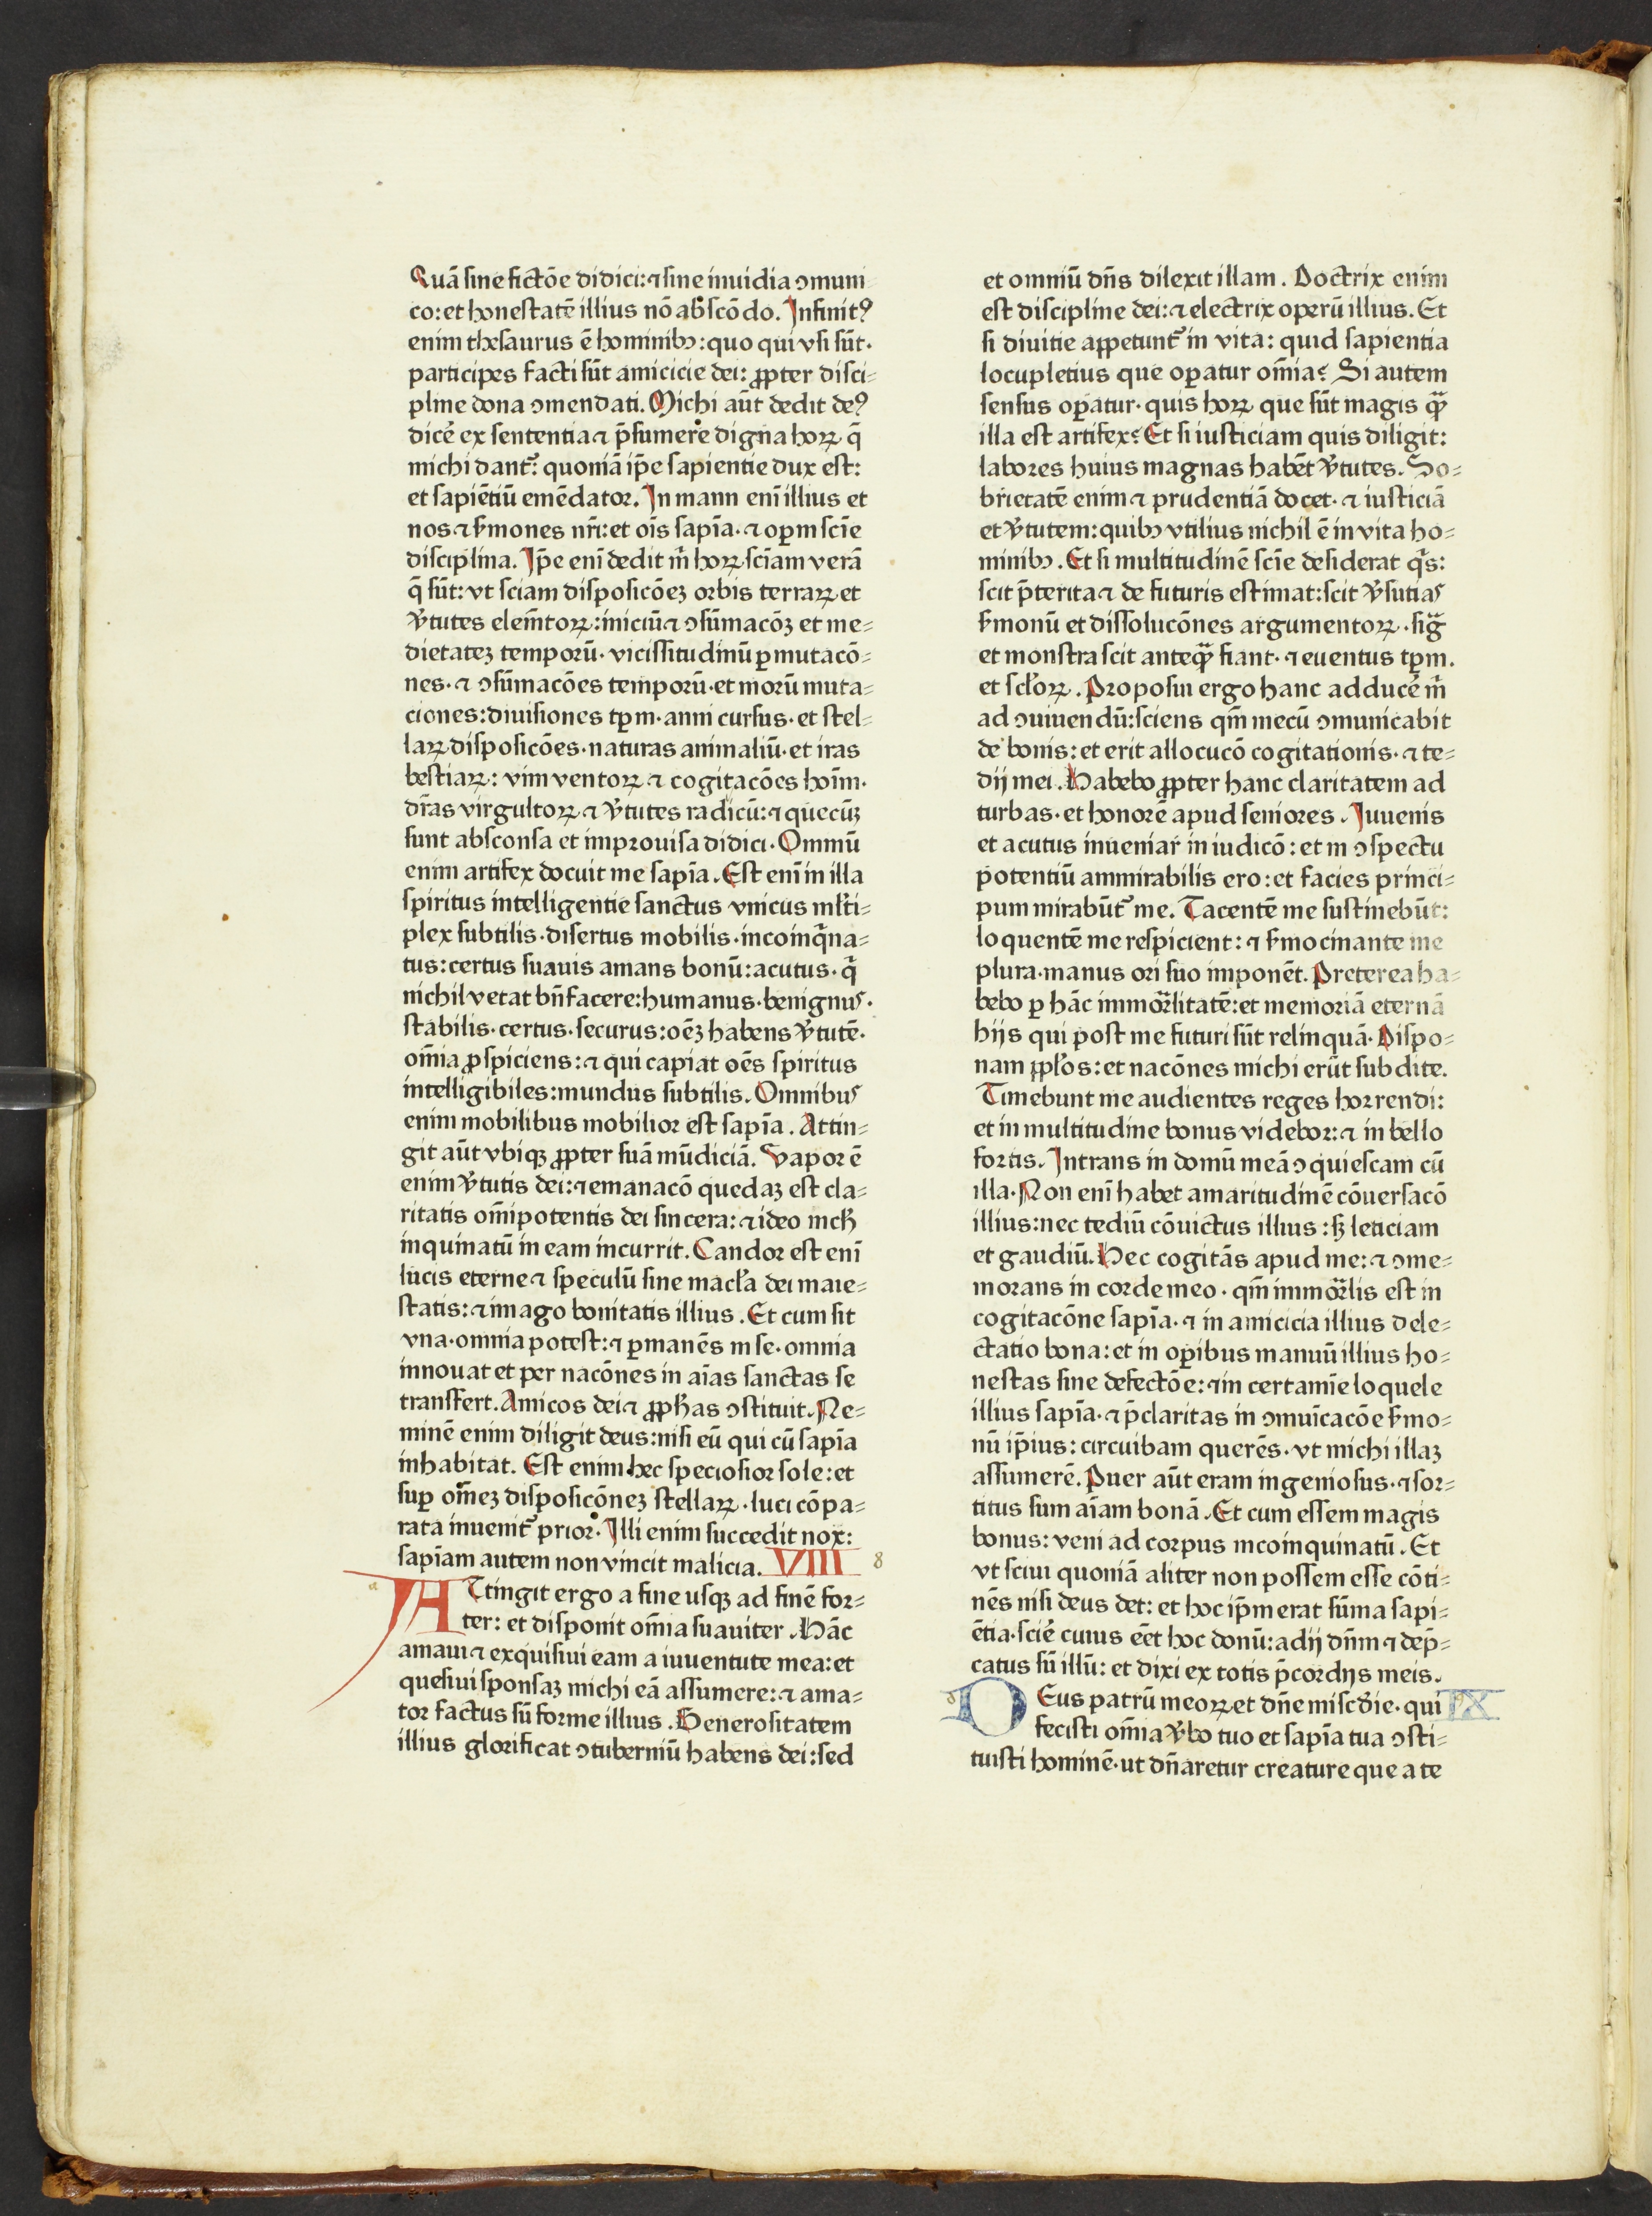 Quā sine fictōe didici: ⁊ sine inuidia ꝯmuni
co: et honestatē illius nō abscōdo. Infinitꝰ
enim thesaurus ē hominibꝫ: quo qui vsi sūt·
participes facti sūt amicicie dei: ꝓpter disci-
pline dona ꝯmendati. Michi aūt dedit deꝰ
dicē ex sententia ⁊ p̄sumere digna hoꝝ q̄
michi dant᷑: quoniā ip̄e sapientie dux est:
et sapiētiū emēdator. In mann enī illius et
nos ⁊ s̄mones nr̄i: et oīs sapīa· ⁊ oꝑm scīe
disciplina. Ip̄e enī dedit m̄ hoꝝ sciam verā
q̄ sūt: vt sciam disposicōeꝫ orbis terraꝝ et
v̓tutes elem̄toꝝ: iniciū ⁊ ꝯsūmacōꝫ et me-
dietateꝫ temporū· vicissitudinū ꝑmutacō-
nes· ⁊ ꝯsūmacōes temporū· et morū muta-
ciones: diuisiones tꝑm· anni cursus· et stel-
laꝝ disposicōes· naturas animaliū· et iras
bestiaꝝ: vim ventoꝝ ⁊ cogitacōes hoīm·
dr̄as virgultoꝝ ⁊ v̓tutes radicū: ⁊ quecūꝫ
sunt absconsa et improuisa didici. Omniū
enim artifex docuit me sapīa. Est enī in illa
spiritus intelligentie sanctus vnicus ml̄ti-
plex subtilis· disertus mobilis· incoinq̄na-
tus: certus suauis amans bonū: acutus· q̄
nichil vetat bn̄facere: humanus· benignus·
stabilis· certus· securus: oēꝫ habens v̓tutē·
om̄ia ꝓspiciens: ⁊ qui capiat oēs spiritus
intelligibiles: mundus subtilis. Omnibus
enim mobilibus mobilior est sapīa. Attin-
git aūt vbiqꝫ ꝓpter suā mūdiciā. Vapor ē
enim v̓tutis dei: ⁊ emanacō quedaꝫ est cla-
ritatis om̄ipotentis dei sincera: ⁊ ideo nich̄
inquinatū in eam incurrit. Candor est enī
lucis eterne ⁊ speculū sine macl̄a dei maie-
statis: ⁊ imago bonitatis illius. Et cum sit
vna· omnia potest: ⁊ ꝑmanēs in se· omnia
innouat et per nacōnes in aīas sanctas se
transfert. Amicos dei ⁊ ꝓph̄as ꝯstituit. Ne-
minē enim diligit deus: nisi eū qui cū sapīa
inhabitat. Est enim hec speciosior sole: et
suꝑ om̄eꝫ disposicōneꝫ stellaꝝ· luci cōpa-
rata inuenit᷑ prior. Illi enim succedit nox:
sapīam autem non vincit malicia. VIII 8
ATtingit ergo a fine usqꝫ ad finē for-
ter: et disponit om̄ia suauiter. Hāc
amaui ⁊ exquisiui eam a iuuentute mea: et
quesiui sponsaꝫ michi eā assumere: ⁊ ama-
tor factus sū forme illius. Generositatem
illius glorificat ꝯtuberniū habens dei: sed
et omniū dn̄s dilexit illam. Doctrix enim
est discipline dei: ⁊ electrix operū illius. Et
si diuitie appetunt᷑ in vita: quid sapientia
locupletius que oꝑatur om̄ia? Si autem
sensus oꝑatur· quis hoꝝ que sūt magis qͣ̄
illa est artifex? Et si iusticiam quis diligit:
labores huius magnas habēt v̓tutes. So-
brietatē enim ⁊ prudentiā docet· ⁊ iusticiā
et v̓tutem: quibꝫ vtilius nichil ē in vita ho-
minibꝫ. Et si multitudinē scīe desiderat qͥs:
scit p̄terita ⁊ de futuris estimat: scit v̓sutias
s̄monū et dissolucōnes argumentoꝝ· sigͣ
et monstra scit anteqͣ̄ fiant· ⁊ euentus tꝑm.
et scl̄oꝝ. Proposui ergo hanc adducē m̄
ad ꝯuiuendū: sciens qm̄ mecū ꝯmunicabit
de bonis: et erit allocucō cogitationis· ⁊ te-
dij mei. Habebo ꝓpter hanc claritatem ad
turbas· et honorē apud seniores. Iuuenis
et acutus inueniar in iudicō: et in ꝯspectu
potentiū ammirabilis ero: et facies princi-
pum mirabūt᷑ me. Tacentē me sustinebūt:
loquentē me respicient: ⁊ s̄mocinante me
plura· manus ori suo imponēt. Preterea ha-
bebo ꝑ hāc immorͣlitatē: et memoriā eternā
hijs qui post me futuri sūt relinquā. Dispo-
nam ppl̄os: et nacōnes michi erūt subdite.
Timebunt me audientes reges horrendi:
et in multitudine bonus videbor: ⁊ in bello
fortis. Intrans in domū meā ꝯquiescam cū
illa. Non enī habet amaritudinē cōuersacō
illius: nec tediū cōuictus illius: sꝫ leticiam
et gaudiū. Hec cogitās apud me: ⁊ ꝯme-
morans in corde meo· qm̄ immorͣlis est in
cogitacōne sapīa· ⁊ in amicicia illius dele-
ctatio bona: et in oꝑibus manuū illius ho-
nestas sine defectōe: ⁊ in certamīe loquele
illius sapīa· ⁊ p̄claritas in ꝯmuīcacōe s̄mo-
nū ip̄ius: circuibam querēs· vt michi illaꝫ
assumerē. Puer aūt eram ingeniosus· ⁊ sor-
titus sum aīam bonā. Et cum essem magis
bonus: veni ad corpus incoinquinatū. Et
vt sciui quoniā aliter non possem esse cōti-
nēs nisi deus det: et hoc ip̄m erat sūma sapi-
ētia· scīe cuius eēt hoc donū: adij dn̄m ⁊ dep̄-
catus sū illū: et dixi ex totis p̄cordijs meis.
DEus patrū meoꝝ et dn̄e misc̄die· qui IX
fecisti om̄ia v̓bo tuo et sapīa tua ꝯsti-
tuisti hominē· ut dn̄aretur creature que a te